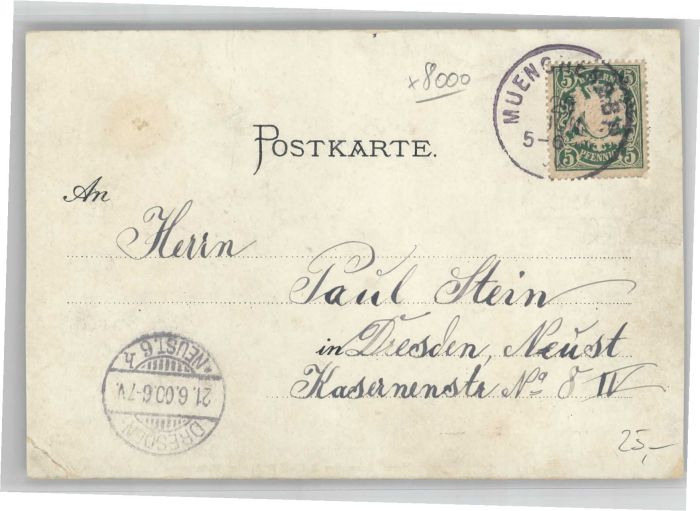 x8000
MUENCHEN
5-6
BAYERN
5 5
PFENNIG
5 5
POSTKARTE.
An
Herrn
Paul Stein
in Dresden, Neust
Kasernenstr No 8 IV
*NEUST. 6 h
21.6.00.6-7V.
DRESDEN
25,-